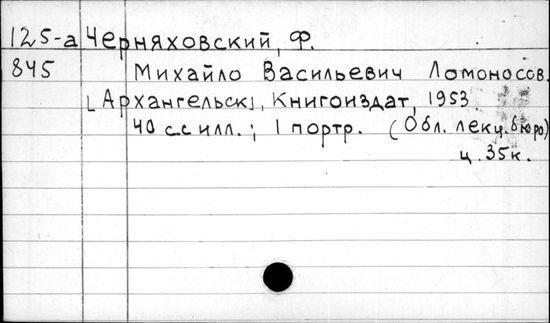 125-а Черняховский, Ф.
845 Михайло Васильевич Ломоносов.
[Архангельск], Книгоиздат, 1953.
40 с с илл.; 1 портр. (Обл. лекц. бюро)
ц. 35к.